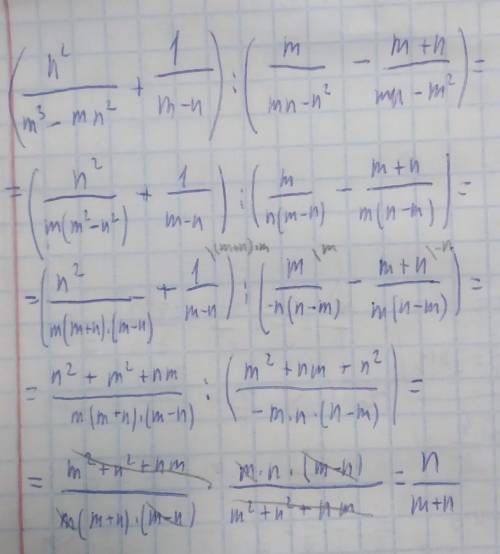 (n²/(m³ − mn²) + 1/(m−n)) : (m/(mn−n²) − (m+n)/(mn − m²)) =
= (n²/(m(m²−n²)) + 1/(m−n)) : (m/(n(m−n)) − (m+n)/(m(n−m))) =
= (n²/(m(m+n)·(m−n)) + 1\(m+n)·m/(m−n)) : (m\m/(−n(n−m)) − (m+n)\−n/(m(n−m))) =
= (n² + m² + nm)/(m(m+n)·(m−n)) : ((m² + nm + n²)/(−m·n·(n−m))) =
= (m² + n² + nm)/(m(m+n)·(m−n)) · (m·n·(m−n))/(m² + n² + nm) = n/(m+n)